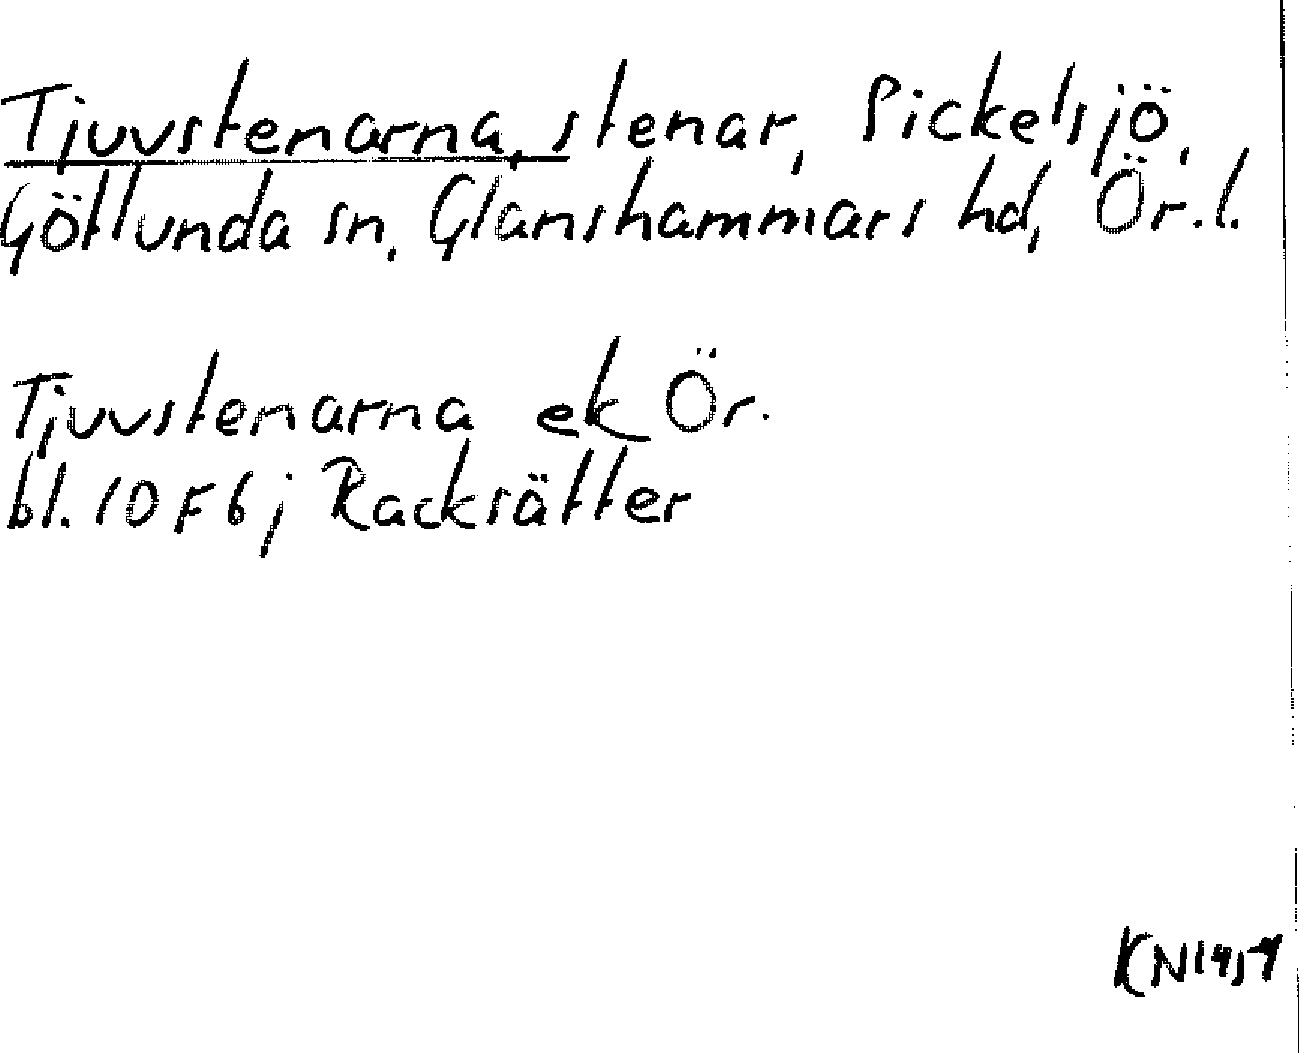 Tjuvstenarna, stenar, Sickelsjö,
Götlunda sn, Glanshammars hd, Ör. l.
Tjuvstenarna ek Ör.
bl. 10F6j Racksätter